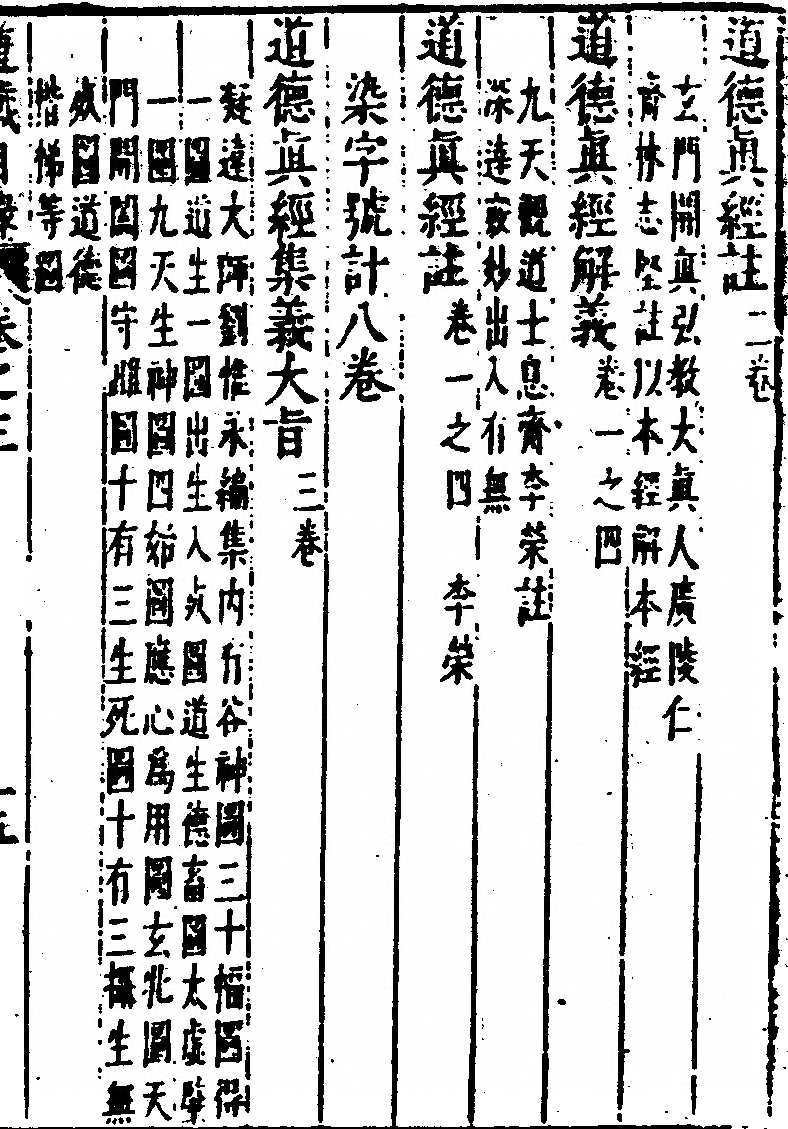 道德眞經註 二卷
玄門開眞弘教大眞人廣陵仁
齊林志堅註以本經解本經
道德眞經解義 卷一之四
九天觀道士息齋李荣註
深達寂妙出入有無
道德眞經註 卷一之四 李荣
染字號計八卷
道德眞經集義大旨 三卷
凝遠大師劉惟永編集内有谷神圖三十幅圖得
一圖道生一圖出生入死圖道生德畜圖太虛肇
一圖九天生神圖四始圖應心爲用圖玄牝圖天
門開闔圖守雌圖十有三生死圖十有三攝生無
死圖道德
揩梯等圖
卷之三